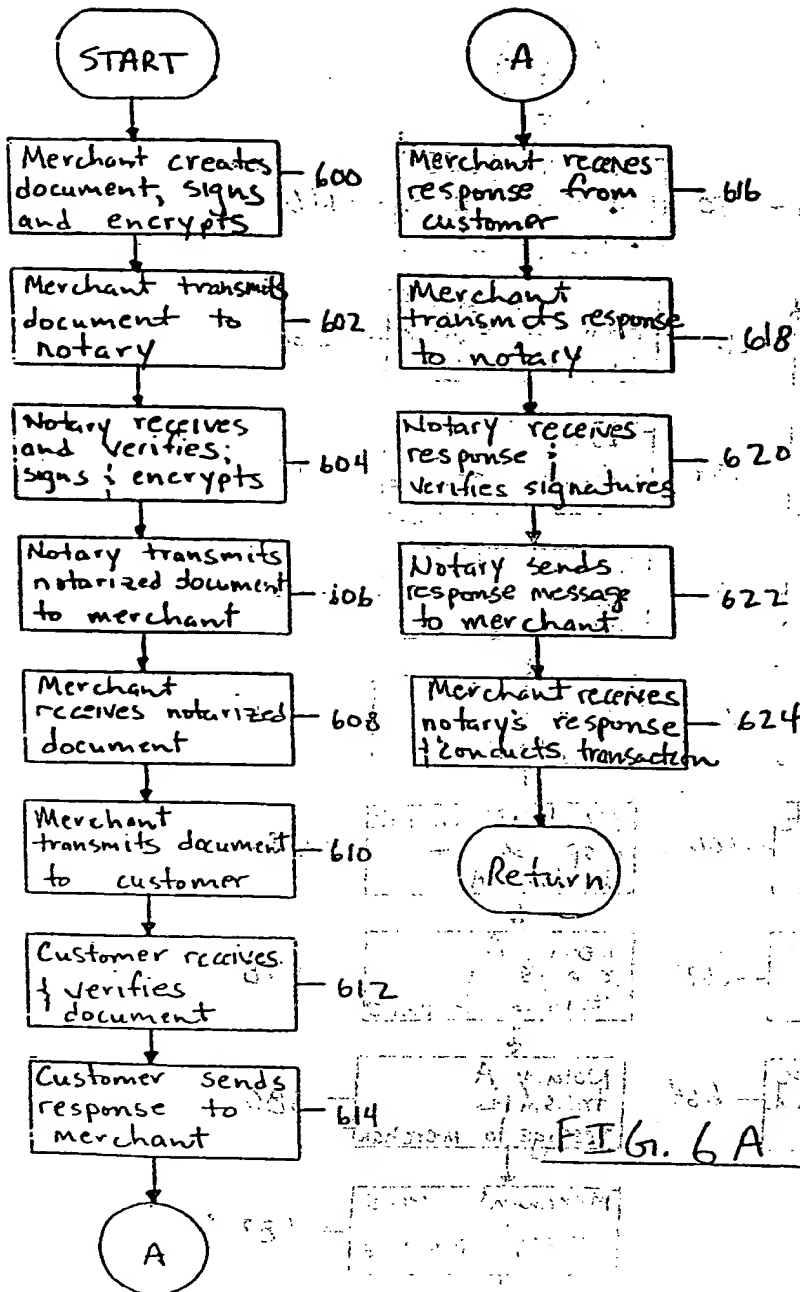 START
Merchant creates
document, signs
and encrypts
600
Merchant transmits
document to
notary
602
Notary receives
and verifies;
signs & encrypts
604
Notary transmits
notarized document
to merchant
606
Merchant
receives notarized
document
608
Merchant
transmits document
to customer
610
Customer receives
& verifies
document
612
Customer sends
response to
merchant
614
A
A
Merchant receives
response from
customer
616
Merchant
transmits response
to notary
618
Notary receives
response &
verifies signatures
620
Notary sends
response message
to merchant
622
Merchant receives
notary's response
& conducts transaction
624
Return
FIG. 6A